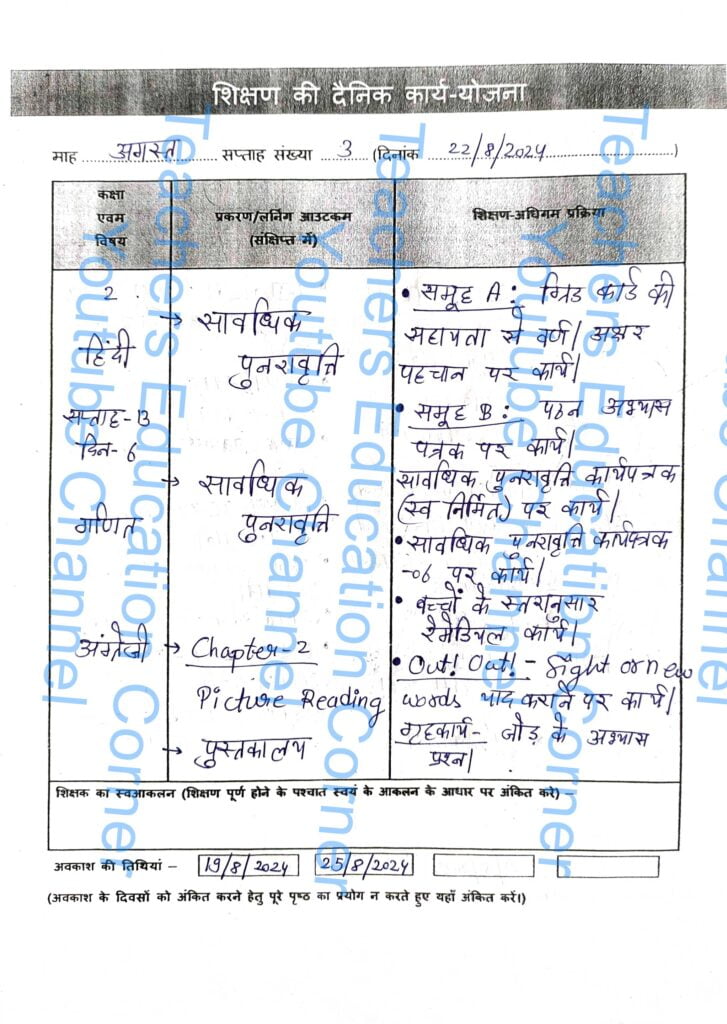 शिक्षण की दैनिक कार्य-योजना
माह ... अगस्त ... सप्ताह संख्या ... 3 ... (दिनांक ... 22/8/2024 ...)
कक्षा
एवम
विषय
प्रकरण/लर्निंग आउटकम
(संक्षिप्त में)
शिक्षण-अधिगम प्रक्रिया
2
हिंदी
सप्ताह-13
दिन-6
→ सावधिक
पुनरावृत्ति
• समूह A: ग्रिड कार्ड की
सहायता से वर्ण/अक्षर
पहचान पर कार्य।
• समूह B: पठन अभ्यास
पत्रक पर कार्य।
गणित
→ सावधिक
पुनरावृत्ति
सावधिक पुनरावृत्ति कार्यपत्रक
(स्व निर्मित) पर कार्य।
• सावधिक पुनरावृत्ति कार्यपत्रक
-06 पर कार्य।
• बच्चों के स्तरानुसार
रेमेडियल कार्य।
अंग्रेजी
→ Chapter-2
Picture Reading
→ पुस्तकालय
• Out! Out! - Sight or new
words याद कराने पर कार्य।
गृहकार्य- जोड़ के अभ्यास
प्रश्न।
शिक्षक का स्वआकलन (शिक्षण पूर्ण होने के पश्चात स्वयं के आकलन के आधार पर अंकित करे) –
अवकाश की तिथियां – 19/8/2024 25/8/2024
(अवकाश के दिवसों को अंकित करने हेतु पूरे पृष्ठ का प्रयोग न करते हुए यहाँ अंकित करें।)
Teachers Education Corner
Youtube Channel
Teachers Education Corner
Youtube Channel
Teachers Education Corner
Youtube Channel